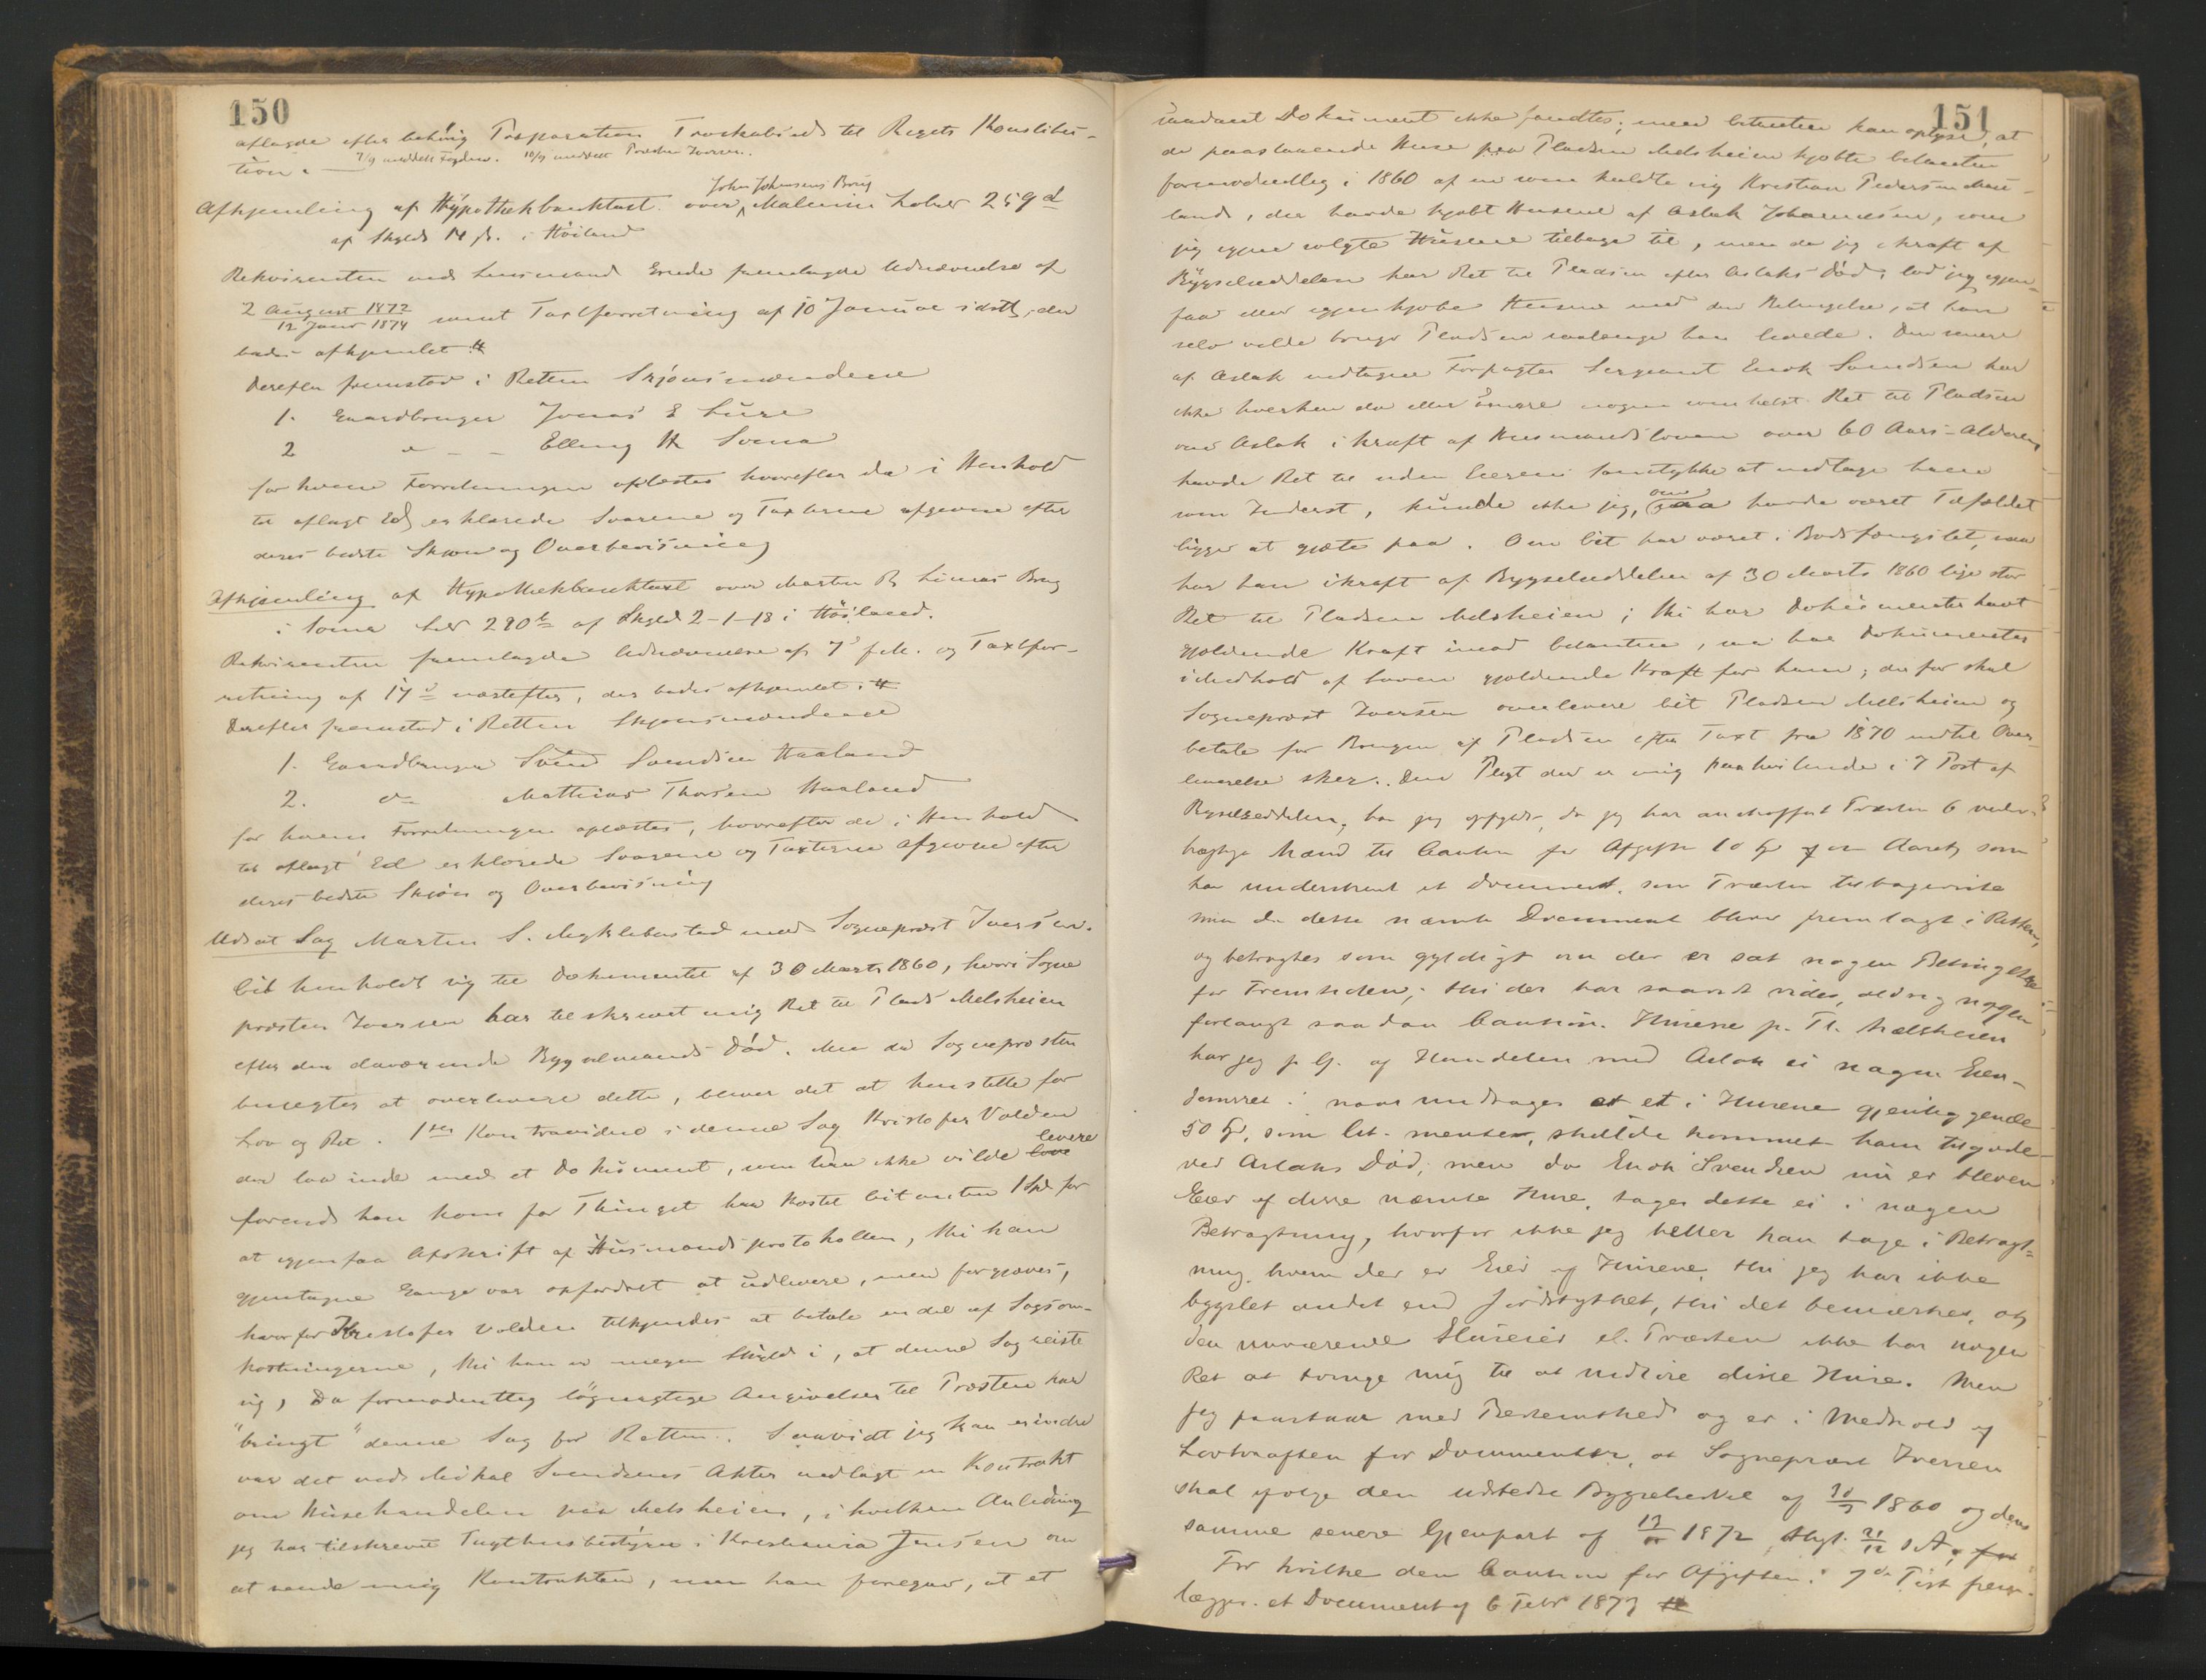 150
aflagde efter behøig Præparation Troskabsed til Rigets Konstitu-
tion.
7/9 meddelt Fogden. 10/9 meddelt Præsten Iversen.
John Johnsens Brug
Afhjemling af Hypothekbanktaxt over Malmin Løber 259 d
af Skyld i Høiland
Rekvirenten ved Lensmand fremlagde Udnævnelse af
2 August 1872
12 Janr 1874 samt Taxtforretning af 10 Januar sidstl, der
bades afhjemlet.
Derefter fremstod i Retten Skjønsmændene
1. Gaardbruger Jonas E Lure
2 " - - Elling H Soma
for hvem Forretningen oplæstes hvorefter de i Henhold
til aflagt Ed erklærede Svarene og Taxterne afgivne efter
deres bedste Skjøn og Overbevisning
Afhjemling af Hypothekbanktaxt over Morten Brug
i Soma Løb 290 b af Skyld 2-1-18 i Høiland.
Rekvirenten fremlagde Udnævnelse af 7 f.M. og Taxtfor-
retning af 17 næstefter, der bades afhjemlet.
Derefter fremstod i Retten Skjønsmændene
1. Gaardbruger Svend Svendsen Haaland
2. do Mathias Thorsen Haaland
for hvem Forretningen oplæstes, hvorefter de i Henhold
til aflagt Ed erklærede Svarene og Taxterne afgivne efter
deres bedste Skjøn og Overbevisning
Udsat Sag Morten S. Myklebustad mod Sogneprest Iversen.
Cit henholdt sig til Dokumentet af 30 Marts 1860, hvori Sogne
præsten Iversen har tilskrevet mig Ret til Plads Melsheien
efter den daværende Bygselmands Død. Men da Sognepræsten
benegter at overlevere dette, bliver det at henstille for
Lov og Ret. 1ste Kontravidne i denne Sag Kristofer Volden
levere
der laa inde med et Dokument, som han ikke vilde
førend han kom for Thinget har kostet Citanten 1 Spd for
at igjenfaa Afskrift af Husmandsprotokollen, thi han
gjentagne Gange var opfordret at udlevere, men forgjæves,
hvorfor Kristofer Volden tilkjendes at betale en del af Sagsom-
kostningerne, thi han er megen Skyld i, at denne Sag reiste
sig, Da formodentlig løgnagtige Angivelser til Præsten har
"bragt" denne Sag for Retten. Saavidt jeg kan erindre
var det ved Mikal Svendsens Akter nedlagt en Kontrakt
om Husehandelen paa Melsheien, i hvilken Anledning
jeg har tilskrevet Tugthusbestyrer i Kristiania Jensen om
at sende mig Kontrakten, men han foregav, at et
151
saadant Dokument ikke fandtes; men Citanten kan oplyse, at
de paastaaende Huse paa Pladsen Melsheien kjøbte Citanten
formodentlig i 1860 af en som kaldte sig Kristian Pedersen
land, der havde kjøbt Husene af Aslak Johannesen, som
jeg igjen solgte Husene tilbage til, men da jeg ikraft af
Bygselseddelen har Ret til Pladsen efter Aslaks Død, lod jeg igjen-
faa eller igjenkjøbe Husene med den Betingelse, at han
selv vilde bruge Pladsen saalænge han levede. Den senere
af Aslak medtagne Forpagter Sergeant Enok Svendsen har
ikke hverken da eller senere nogen som helst Ret til Pladsen
om Aslak i kraft af Husmandsloven over 60 Aars-Alderen
havde Ret til uden Eierens Samtykke at medtage ham
som Inderst, kunde ikke jeg, om havde været Tilfældet
ligger at gjøte paa. Om Cit har været i Bodsfængslet, saa
har han ikraft af Bygselseddelen af 30 Marts 1860 lige stor
Ret til Pladsen Melsheien; thi har Dokumentet havt
gjeldende Kraft imod Citanten, saa har Dokumentet
i Medhold af Loven gjældende Kraft for ham; derfor skal
Sogneprest Iversen overlevere Cit Pladsen Melsheien og
betale for Brugen af Pladsen efter Taxt fra 1870 indtil Over-
leverelse sker. Den Pligt der er mig paahvilende i 7 Post af
Bygselseddelen, har jeg opfyldt, da jeg har anskaffet Præsten 6 veder-
hæftige Mænd til Caution for Afgiften 10 Aaret, som
har underskrevet et Document, som Præsten tilbageviste
men da dette nævnte Document bliver fremlagt i Retten,
og betragtes som gyldigt om der er sat nogen Betingelse
for Fremtiden; thi der har saavidt vides, aldrig nogen
forlangt saadan Caution. Husene p. Pl. Melsheien
har jeg p. Gr. af Handelen med Aslak ei nogen Eien-
domsret i naar undtages et i Husene gjenliggende
50, som Cit. mente, skulde kommet ham tilgode
ved Aslaks Død; men da Enok Svendsen nu er bleven
Eier af disse nævnte Huse, tages dette ei i nogen
Betragtning, hvorfor ikke jeg heller kan tage i Betragt=
ning, hvem der er Eier af Husene, thi jeg har ikke
bygslet andet end Jordstykket, thi det bemærkes, at
den nuværende Huseier el. Præsten ikke har nogen
Ret at tvinge mig til at indløse disse Huse. Men
jeg paastaar med Bestemthed og er i Medhold af
Lovkraften for Documentet, at Sogneprest Iversen
skal følge den udstedte Bygselseddel af 30/3 1860 og dens
samme senere Gjenpart af 1872 thgl. 21/12 s A.
For hvilke den Caution for Afgiften i 7de Post frem-
lægges et Document af 6 Febr 1873